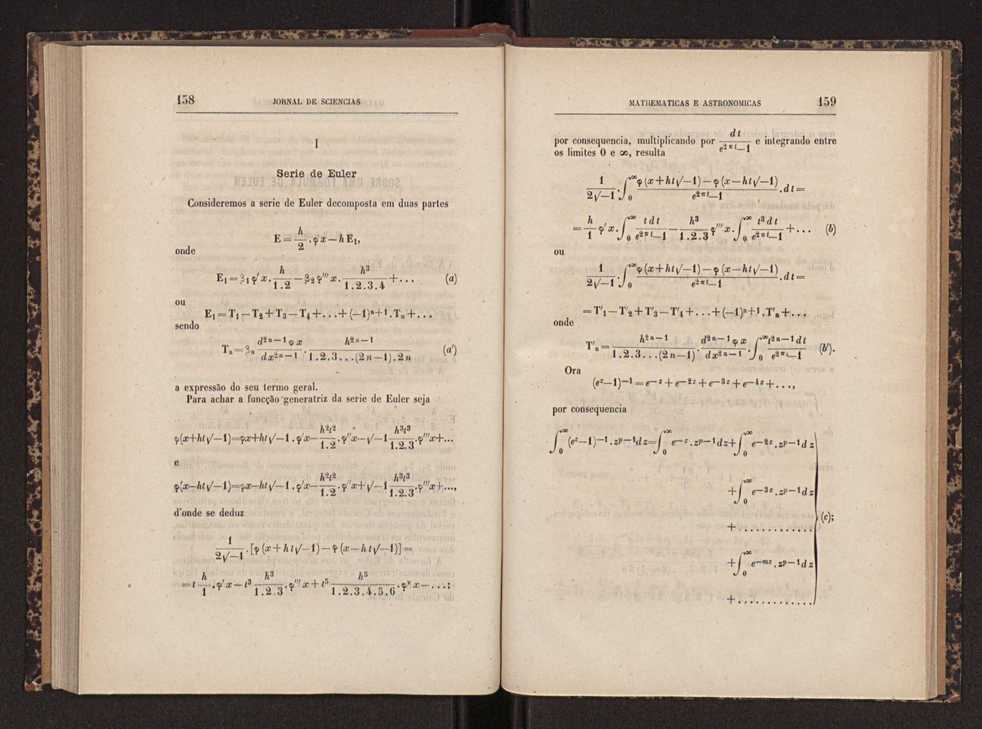 158 JORNAL DE SCIENCIAS
I
Serie de Euler
Consideremos a serie de Euler decomposta em duas partes
E = h/2 . φx — h E₁,
onde
E₁ = β₁ φ′x . h/1.2 — β₂ φ‴x . h³/1.2.3.4 + . . . (a)
ou
E₁ = T₁ — T₂ + T₃ — T₄ + . . . + (—1)ⁿ⁺¹ . Tₙ + . . .
sendo
Tₙ = βₙ d²ⁿ⁻¹φx/dx²ⁿ⁻¹ . h²ⁿ⁻¹/1.2.3...(2n—1).2n (a′)
a expressão do seu termo geral.
Para achar a funcção generatriz da serie de Euler seja
φ(x+ht√—1)=φx+ht√—1 . φ′x— h²t²/1.2 . φ″x—√—1 h³t³/1.2.3 . φ‴x+...
e
φ(x—ht√—1)=φx—ht√—1 . φ′x— h²t²/1.2 . φ″x+√—1 h³t³/1.2.3 . φ‴x+...,
d'onde se deduz
1/2√—1 . [φ(x+ht√—1)—φ(x—ht√—1)]=
=t h/1 . φ′x—t³ h³/1.2.3 . φ‴x+t⁵ h⁵/1.2.3.4.5.6 . φᵛx—...;
MATHEMATICAS E ASTRONOMICAS 159
por consequencia, multiplicando por dt/e²ᵖⁱᵗ—1 e integrando entre
os limites 0 e ∞, resulta
1/2√—1 . ∫₀^∞ φ(x+ht√—1)—φ(x—ht√—1)/e^2πt—1 . dt=
= h/1 φ′x . ∫₀^∞ tdt/e^2πt—1 — h³/1.2.3 φ‴x . ∫₀^∞ t³dt/e^2πt—1 + . . . (b)
ou
1/2√—1 . ∫₀^∞ φ(x+ht√—1)—φ(x—ht√—1)/e^2πt—1 . dt=
=T′₁—T′₂+T′₃—T′₄+...+(—1)ⁿ⁺¹.T′ₙ+...
onde
T′ₙ= h²ⁿ⁻¹/1.2.3...(2n—1) . d²ⁿ⁻¹φx/dx²ⁿ⁻¹ . ∫₀^∞ t²ⁿ⁻¹dt/e^2πt—1 (b′).
Ora
(e^z—1)^—1=e^—z+e^—2z+e^—3z+e^—4z+...,
por consequencia
∫₀^∞ (e^z—1)^—1 . z^p—1 dz=∫₀^∞ e^—z . z^p—1 dz+∫₀^∞ e^—2z . z^p—1 dz
+∫₀^∞ e^—3z . z^p—1 dz
+ . . . . . . . . . . . . . (c);
+∫₀^∞ e^—mz . z^p—1 dz
+ . . . . . . . . . . . . .